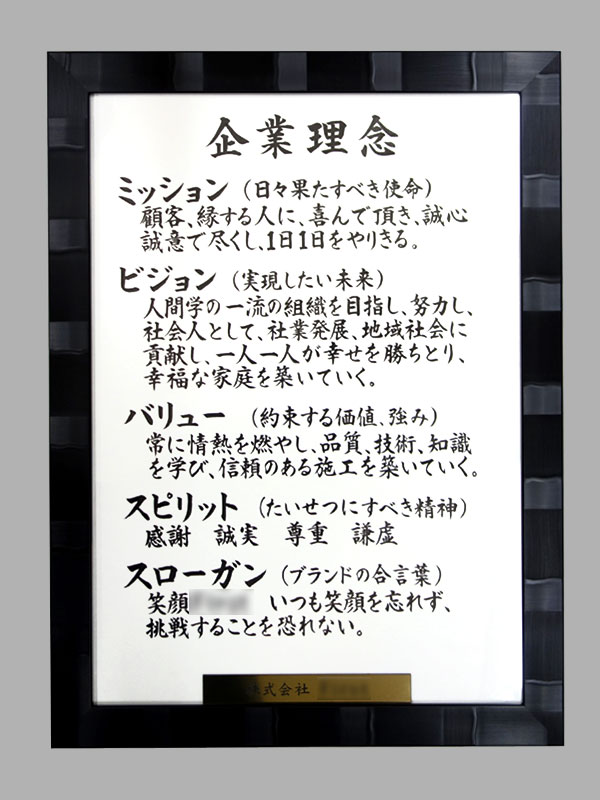 企業理念
ミッション（日々果たすべき使命）
顧客、縁する人に、喜んで頂き、誠心
誠意で尽くし、1日1日をやりきる。
ビジョン（実現したい未来）
人間学の一流の組織を目指し、努力し、
社会人として、社業発展、地域社会に
貢献し、一人一人が幸せを勝ちとり、
幸福な家庭を築いていく。
バリュー（約束する価値、強み）
常に情熱を燃やし、品質、技術、知識
を学び、信頼のある施工を築いていく。
スピリット（たいせつにすべき精神）
感謝 誠実 尊重 謙虚
スローガン（ブランドの合言葉）
笑顔 いつも笑顔を忘れず、
挑戦することを恐れない。
株式会社